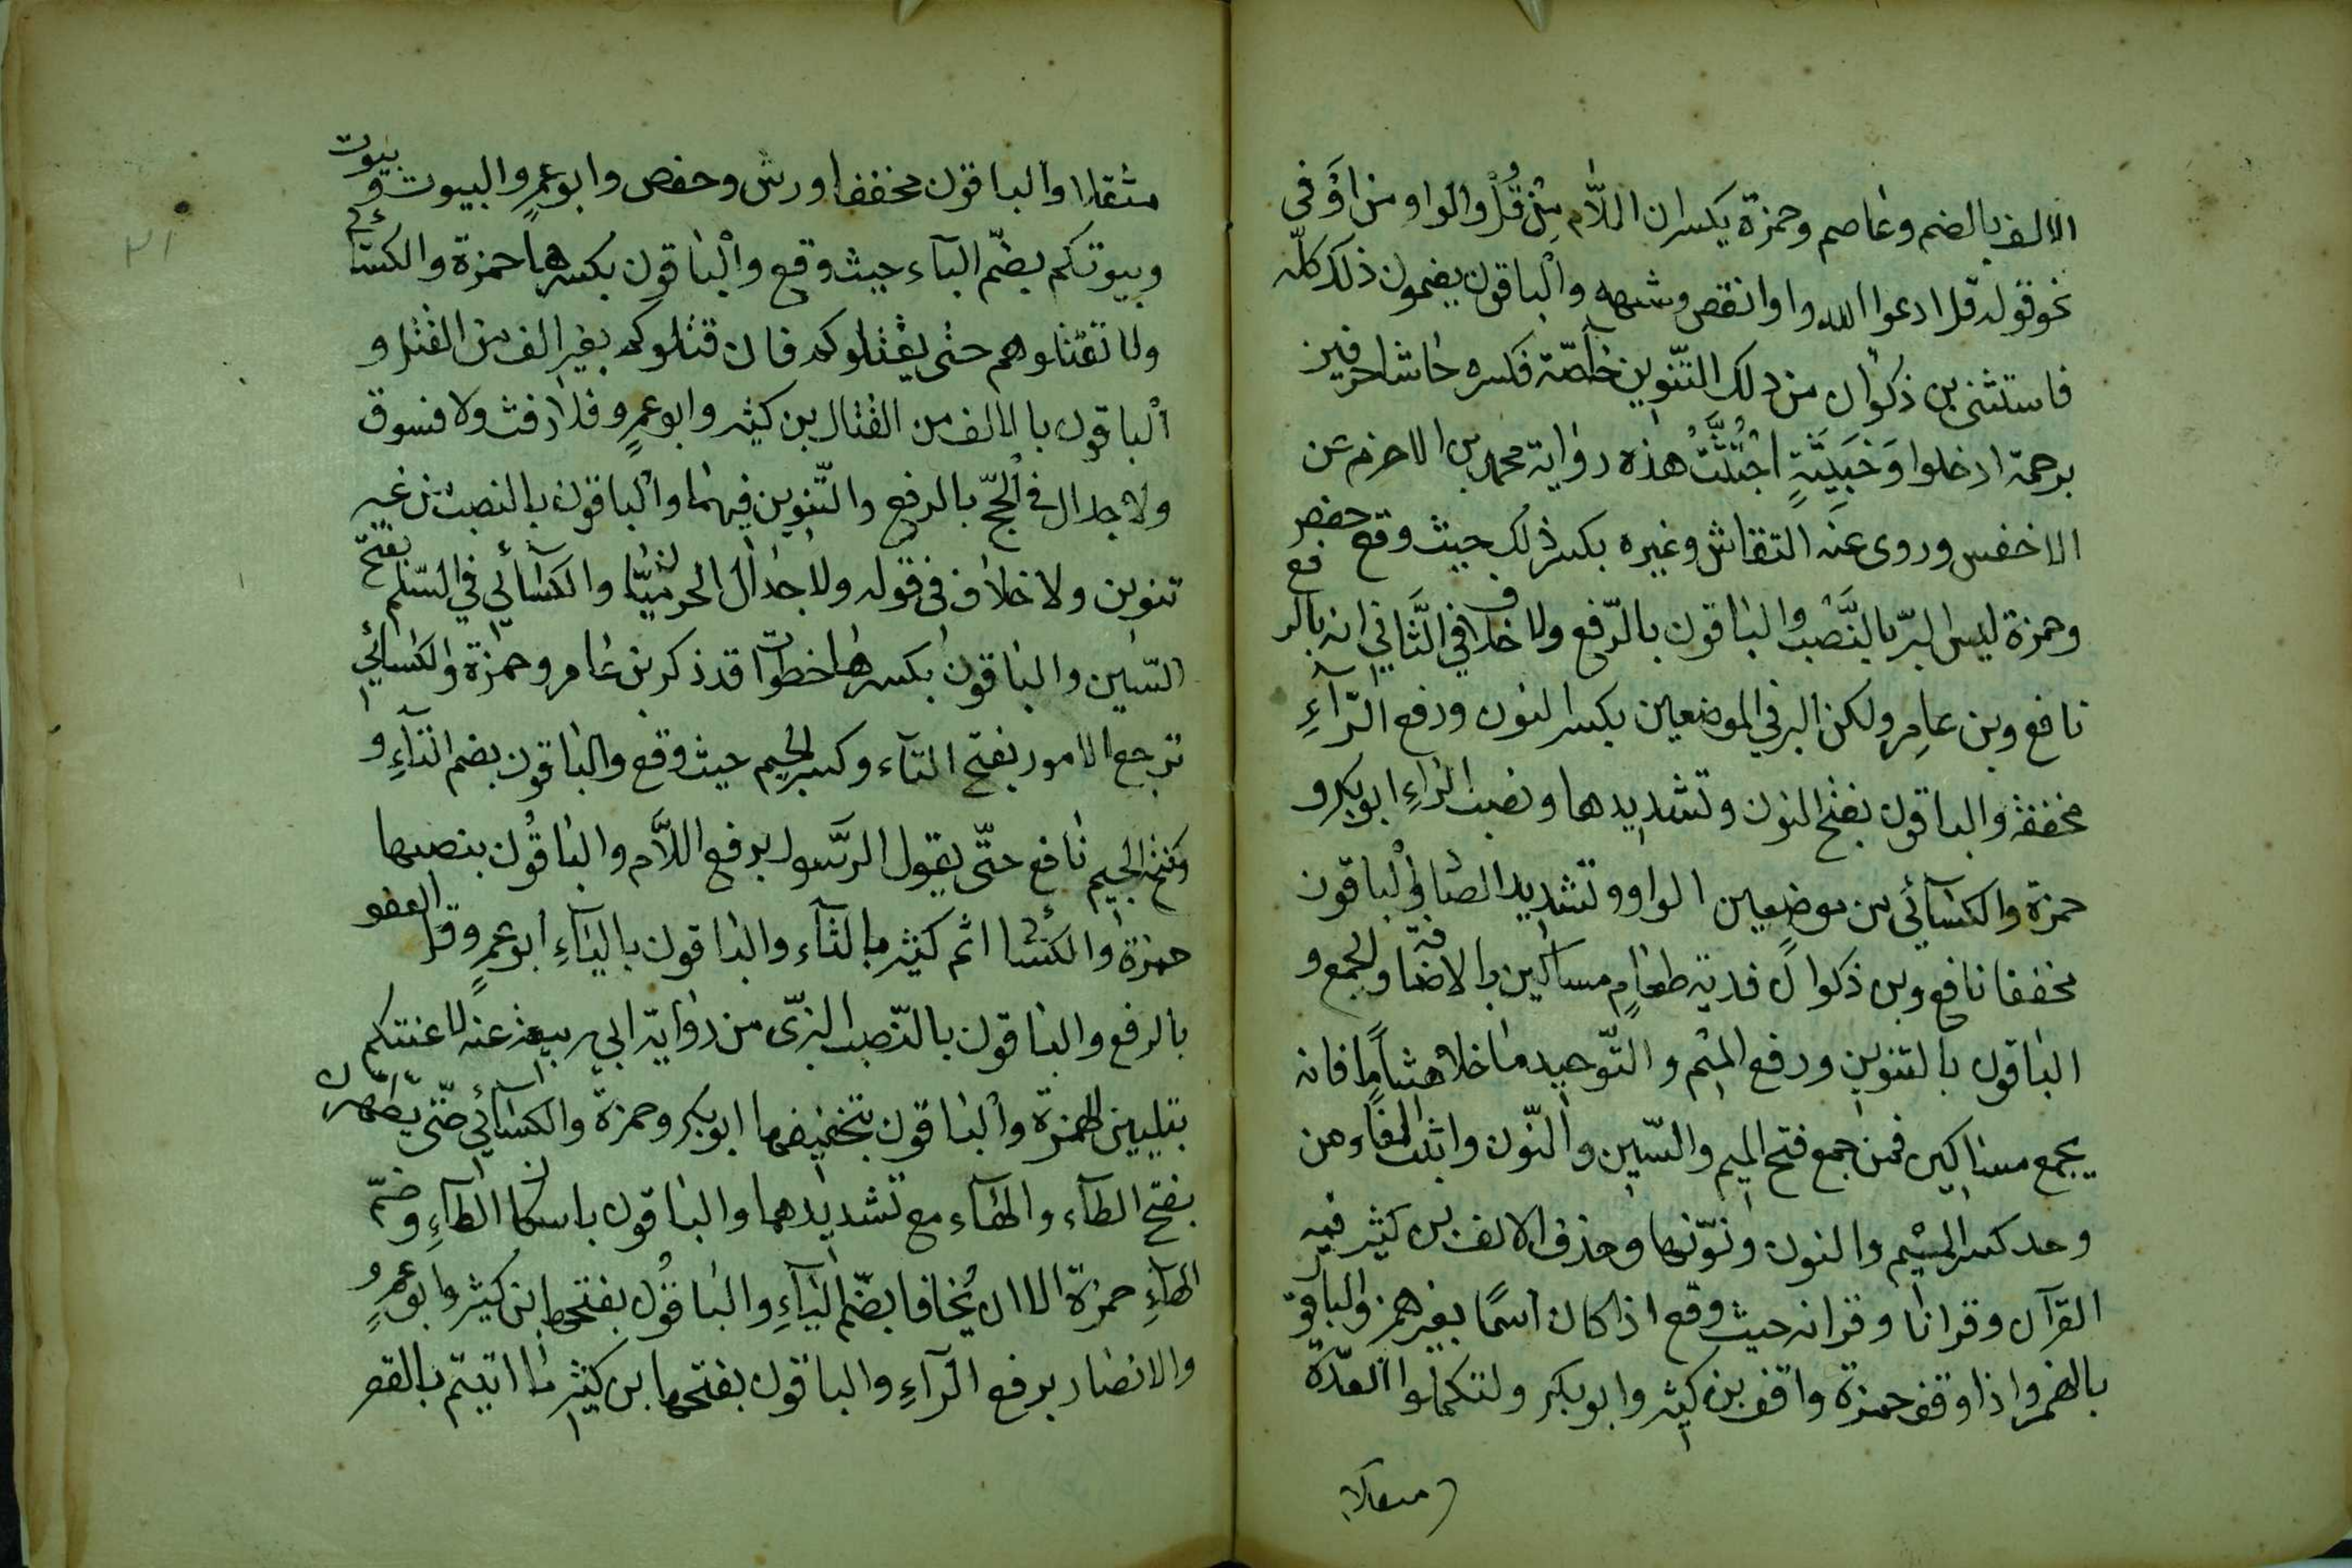 الالف بالضم وعاصم وحمزة يكسران اللّام مِن قُلْ والواو من اوْ في
نحو قوله قل ادعوا الله واو انقص وشبهه والباقون يضمون ذلك كلّه
فاستثنى بن ذكوان من ذلك التنوين خاصّة فكسره حاشا حرفين
برحمة ادخلوا وَخَبِيثَةٍ اجْتُثَّتْ هذه رواية محمد بن الاخرم عن
الاخفس وروى عنه النقاش وغيره بكسر ذلك حيث وقع حفص
وحمزة ليس البرّ بالنَّصْب والباقون بالرّفع ولا خلاف في الثَّاني انه بالرفع
نافع وبن عامِر ولكن البر في الموضعين بكسر النون ورفع الرّآءِ
مخففة والباقون بفتح النون وتشديدها ونصب الراءِ ابو بكر و
حمزة والكسآئي من موضٍ بفتح الواو وتشديد الصاد والباقون
مخففا نافع وبن ذكوان فدية طعامٍ مساكين بالاضافة والجمع و
الباقون بالتنوين ورفع الميم والتّوحيد ما خلا هشامًا فانه
يجمع مساكين فمن جمع فتح الميم والسّين والنّون واثبت الفاء ومن
وحد كسر الميم والنون ونوّنها وحذف الالف بن كثير فيه
القرآن وقرانا وقرانه حيث وقع اذا كان اسمًا بغير همز والباقون
بالهمز واذا وقف حمزة وافق بن كثير وابو بكر ولتكملوا العدّة
مثقلا
مثقلا والباقون مخففا ورش وحفص وابو عمرٍو البيوت وبيوت
وبيوتكم بضّم البآء حيث وقع والباقون بكسرها حمزة والكسائي
ولا تقتلوهم حتى يقتلوكم فان قتلوكم بغير الف من القتل و
الباقون بالالف من القتال بن كثير وابو عمرٍو فلا رفث ولا فسوق
ولا جدال في الحجّ بالرفع والتّنوين فيهما والباقون بالنصب من غير
تنوين ولا خلاف في قوله ولا جدال الحرميّان والكسآئي في السّلم بفتح
السّين والباقون بكسرها خطوات قد ذكر بن عامر وحمزة والكسائي
ترجع الامور بفتح التآء وكسر الجيم حيث وقع والباقون بضم التآءِ و
وفتح الجيم نافع حتّى يقول الرَّسول برفع اللاَّم والباقُون بنصبها
حمزة والكسائي اثم كثير بالثآء والباقون باليآءِ ابو عمرٍو قل العفو
بالرفع والباقون بالنّصب البزّى من رواية ابي ربيعة عنه لاعنتكم
بتليين الهمزة والباقون بتخفيفها ابو بكر وحمزة والكسآئي حتّى يطهرن
بفتح الطآء والهآء مع تشديدهما والباقون باسكان الطآءِ وضمّ
الهآءِ حمزة الا ان يُخافا بضّم اليآءِ والباقُون بفتحها بن كثير وابو عمرٍو
والانضار برفع الرّآءِ والباقون بفتحها بن كثير ما اتيتم بالقصر